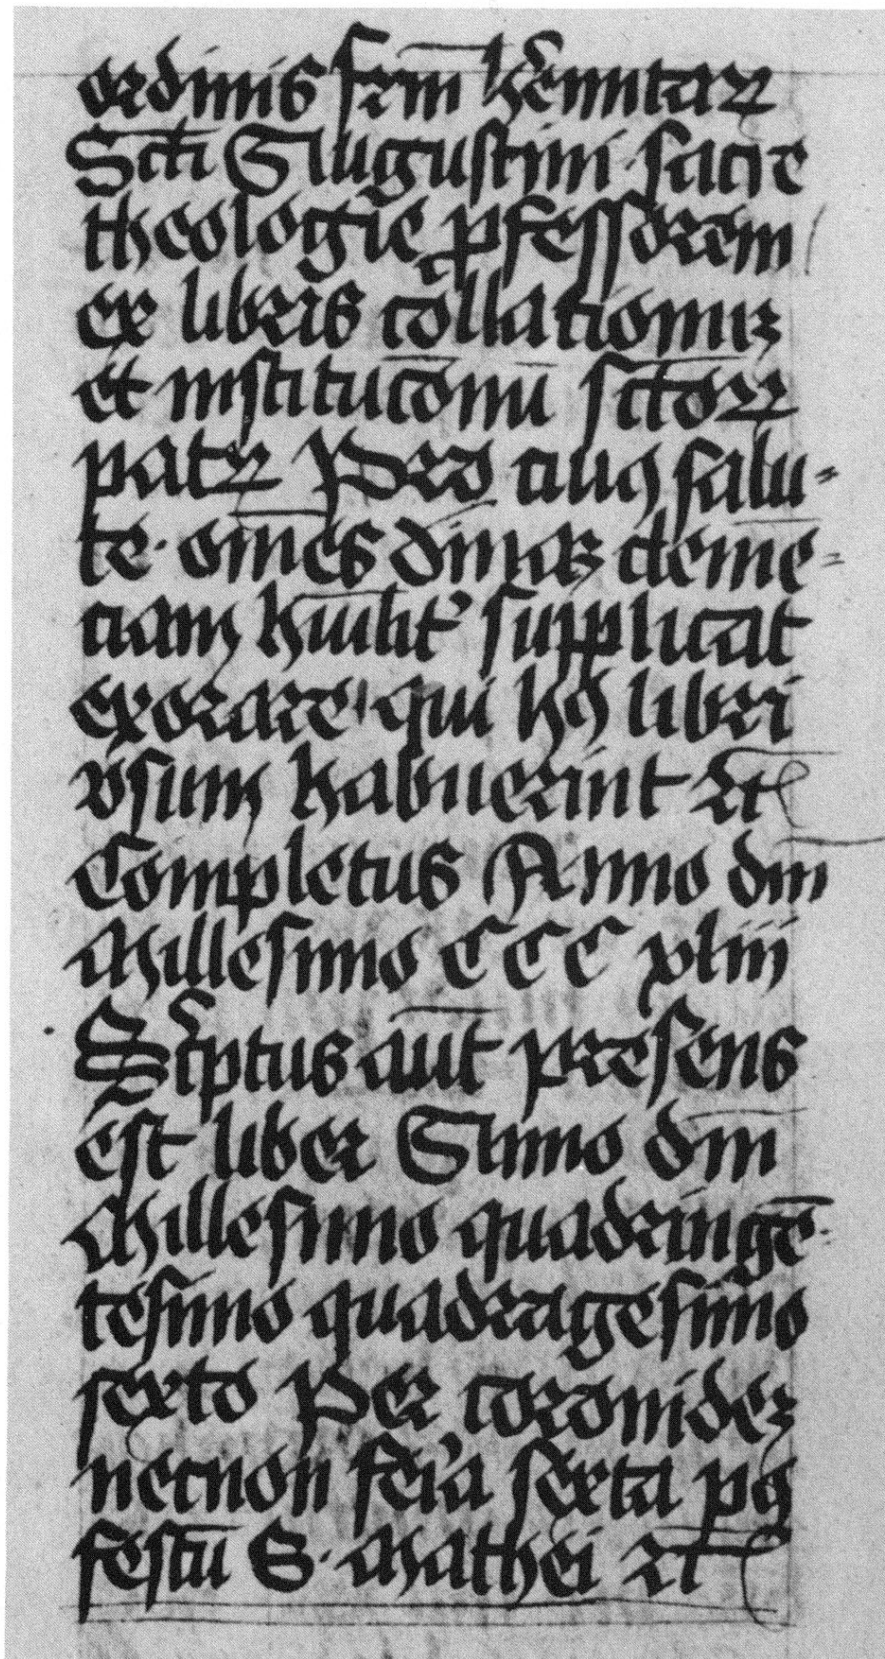 ordinis frm̄ h̾emitaꝝ
Scti̅ Augustini sacre
theologie ꝓfessorem
ex libris collationuꝫ
et institucōnū sctōꝝ
patꝝ Pro cuiꝯ salu⸗
te · om̄es diuinaꝫ cleme̅⸗
ciam hūilit᾿ supplicat
exorare qui hꝯ libri
vsum habuerint ⁊c̄
Completus Anno dm̄
Millesimo CCC xliij
Sc̾ptus aut̄ presens
est liber Anno dm̄
Millesimo quadringe̅⸗
tesimo quadragesimo
sexto Per coronideꝫ
necnon feria sexta pꝯ
festū S · Mathei ⁊c̄